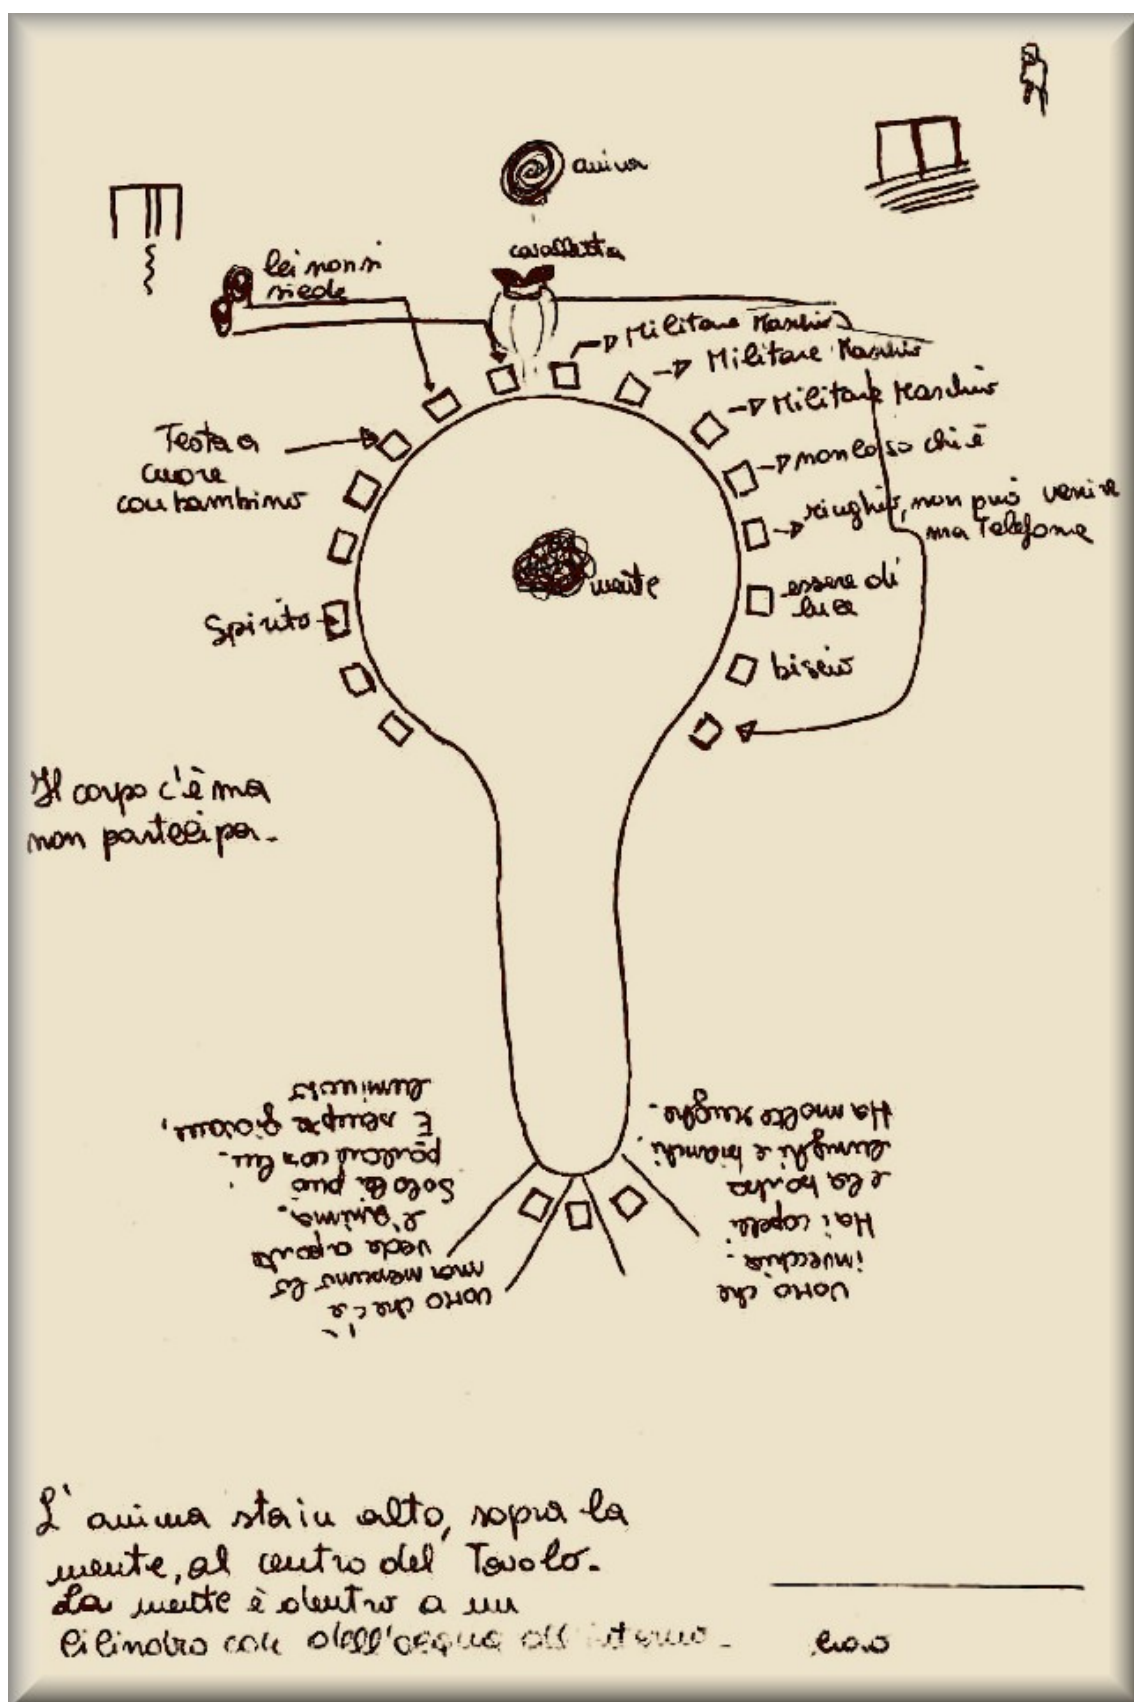 anima
cavalletta
lei non si
siede
Militare Maschio
Militare Maschio
Militare Maschio
non lo so chi è
Testa a
cuore
con bambino
ringhio, non può venire
ma Telefona
mente
essere di
luce
Spirito
biscio
Il corpo c'è ma
non partecipa.
uomo che c'è
ma nessuno lo
vede a parte
l'anima.
Solo lei può
parlare con lui.
E sempre giovane,
luminoso
uomo che
invecchia.
Ha i capelli
e la barba
lunghi e bianchi.
Ha molte rughe.
L'anima sta in alto, sopra la
mente, al centro del Tavolo.
La mente è dentro a un
cilindro con dell'acqua all'interno.